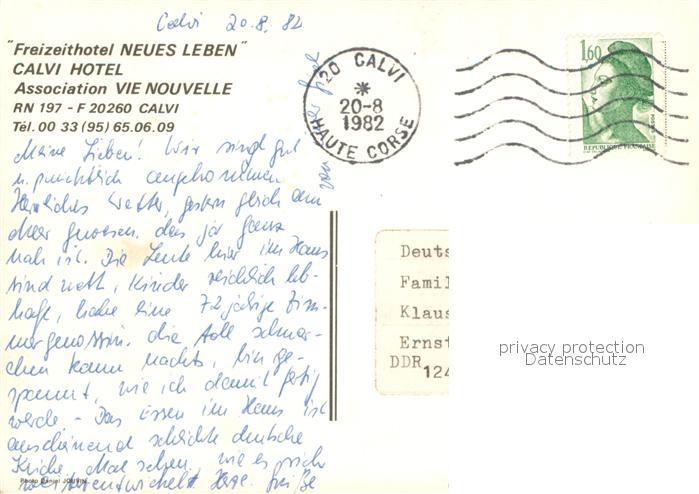 Calvi 20.8.82
"Freizeithotel NEUES LEBEN"
CALVI HOTEL
Association VIE NOUVELLE
RN 197 - F 20260 CALVI
Tél. 00 33 (95) 65.06.09
20 CALVI
20-8
1982
HAUTE CORSE
1,60
REPUBLIQUE FRANCAISE
Meine Lieben! Wir sind gut
u. pünktlich angekommen
Herrliches Wetter, gestern gleich am
Meer gewesen, das ja ganz
nah ist. Die Leute hier im Haus
sind nett, Kinder reichlich leb-
haft, habe eine 72jährige Zim-
mergenossin, die toll schnar-
chen kann nachts, bin ge-
spannt, wie ich damit fertig
werde - Das Essen im Haus ist
anscheinend schlichte deutsche
Küche. Mal sehen, wie es sich
weiterentwickelt. Grüße
von
Photo Daniel JOUVIN
Deuts
Famil
Klaus
Ernst
DDR
124
privacy protection
Datenschutz